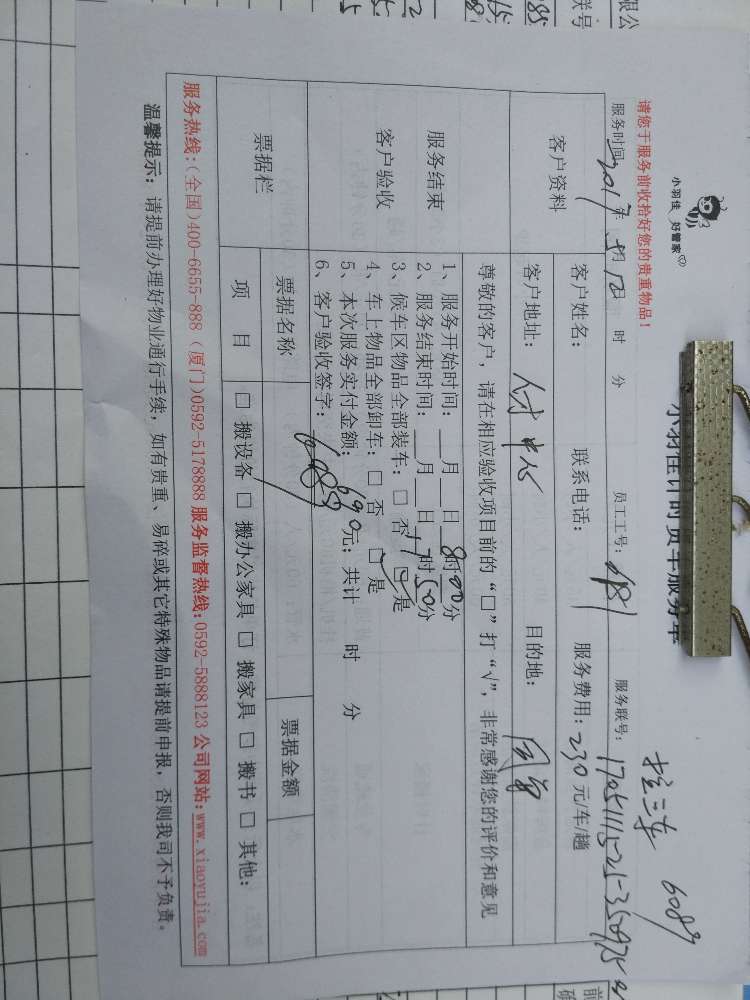 小羽佳 好管家
小羽佳计时货车服务单
请您于服务前收拾好您的贵重物品！
服务时间：2017年5月12日 时 分 员工工号： 服务联号：
拉三车 6089
客户资料
客户姓名： 联系电话： 服务费用：230元/车/趟
客户地址： 中心 目的地：同安
服务结束
客户验收
尊敬的客户，请在相应验收项目前的“□”打“√”，非常感谢您的评价和意见
1、服务开始时间：__月__日 8时00分
2、服务结束时间：__月__日17时50分
3、候车区物品全部装车：□ 否 ☑ 是
4、车上物品全部卸车：□ 否 ☑ 是
5、本次服务实付金额：690元；共计 时 分
6、客户验收签字：
票据栏
票据名称 票据金额
项 目 □ 搬设备 □ 搬办公家具 □ 搬家具 □ 搬书 □ 其他：
服务热线:(全国)400-6655-888 (厦门)0592-5178888 服务监督热线:0592-5888123 公司网站:www.xiaoyujia.com
温馨提示：请提前办理好物业通行手续，如有贵重、易碎或其它特殊物品请提前申报，否则我司不予负责。